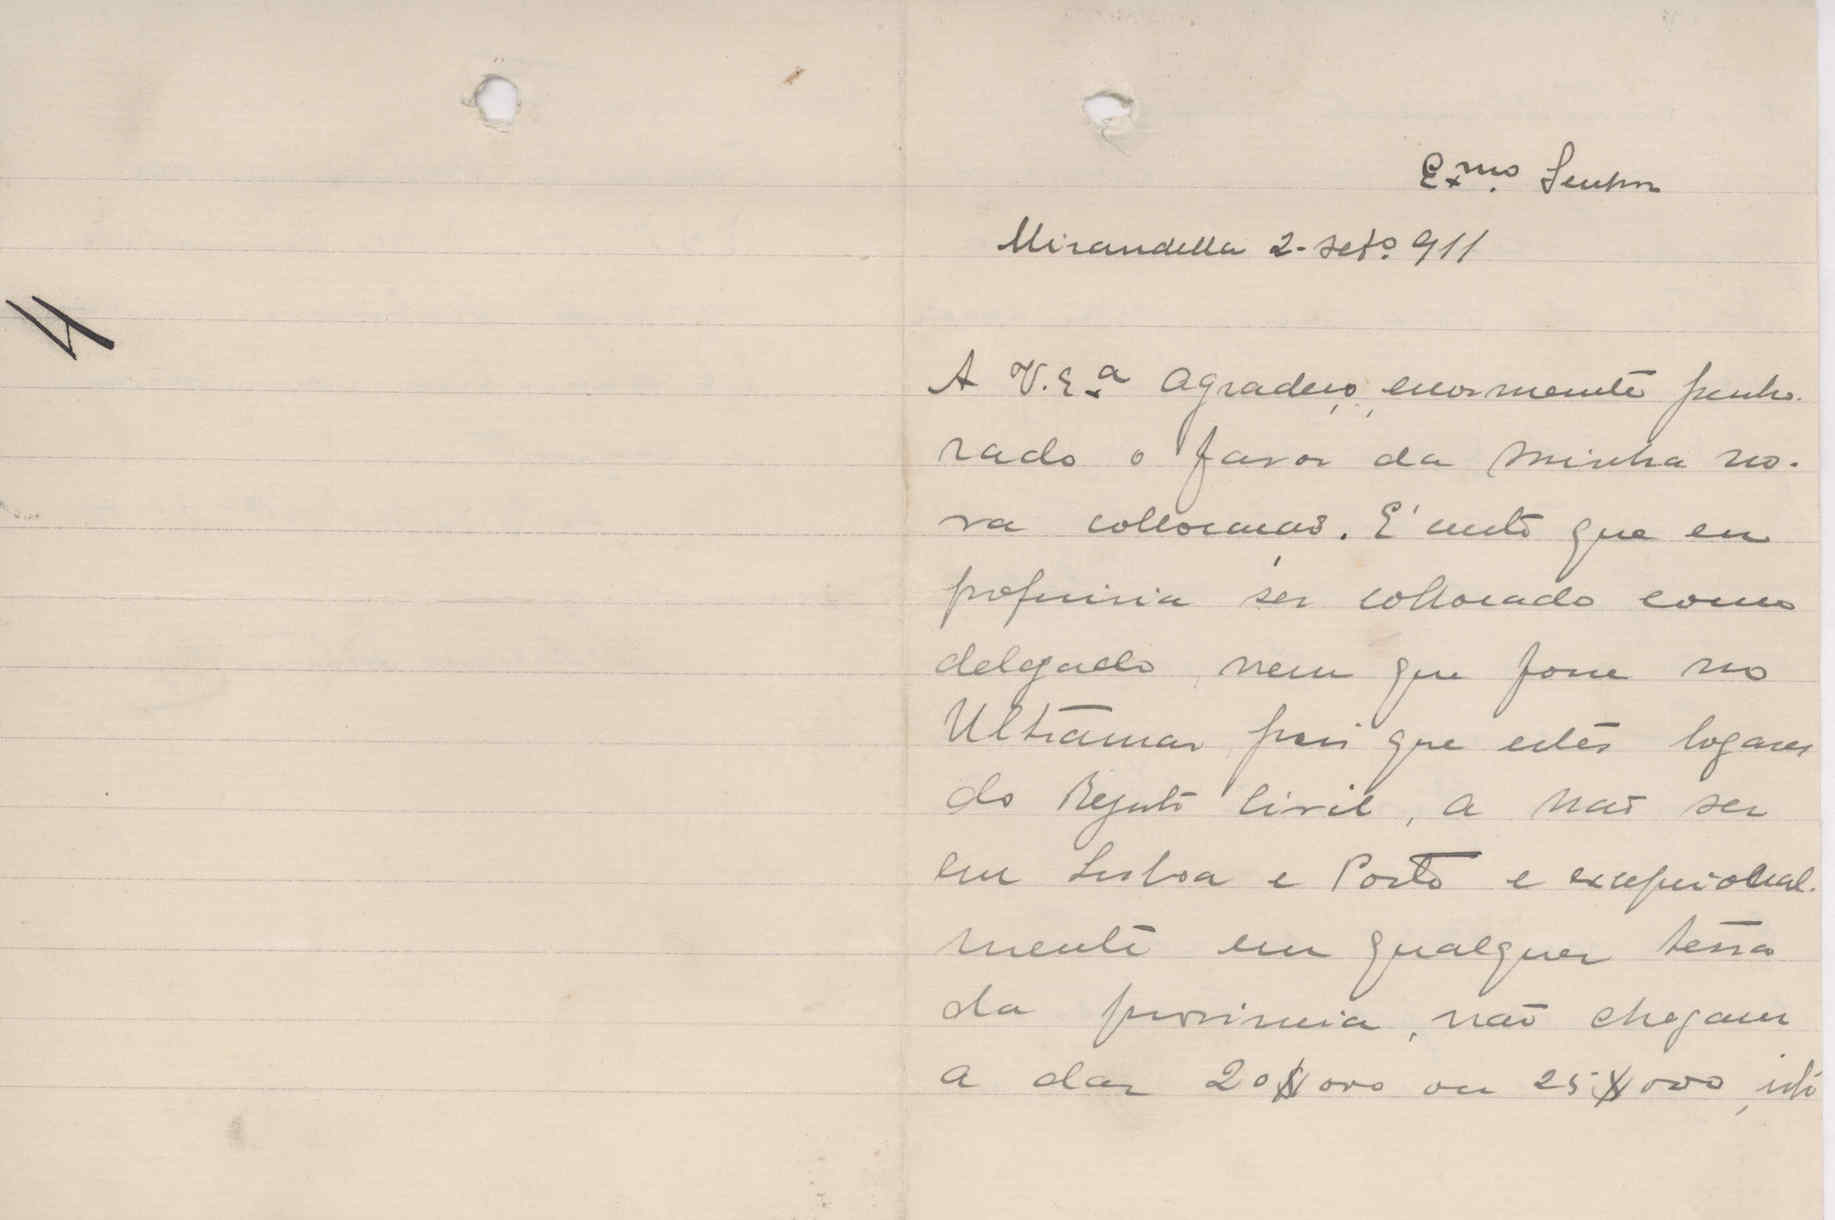 Exmo. Senhor
Mirandella 2-seto. 911
A V. Exa agradeço, enormemente penho-
rado o favor da minha no-
va collocação. É certo que eu
preferiria ser collocado como
delegado, nem que fosse no
Ultramar pois que estes logares
do Registo Civil, a não ser
em Lisboa e Porto e excepcional-
mente em qualquer terra
da provincia, não chegam
a dar 20$000 ou 25$000, isto